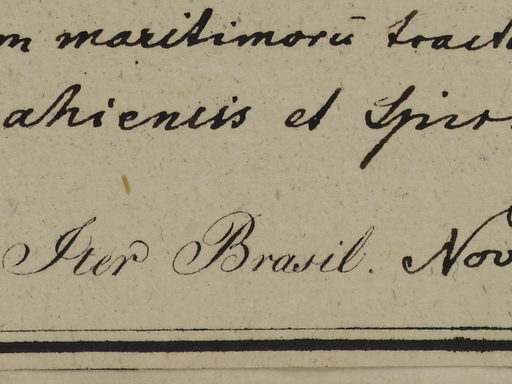 m maritimorū tract
ahiensis et Spir
Iter Brasil. Nov